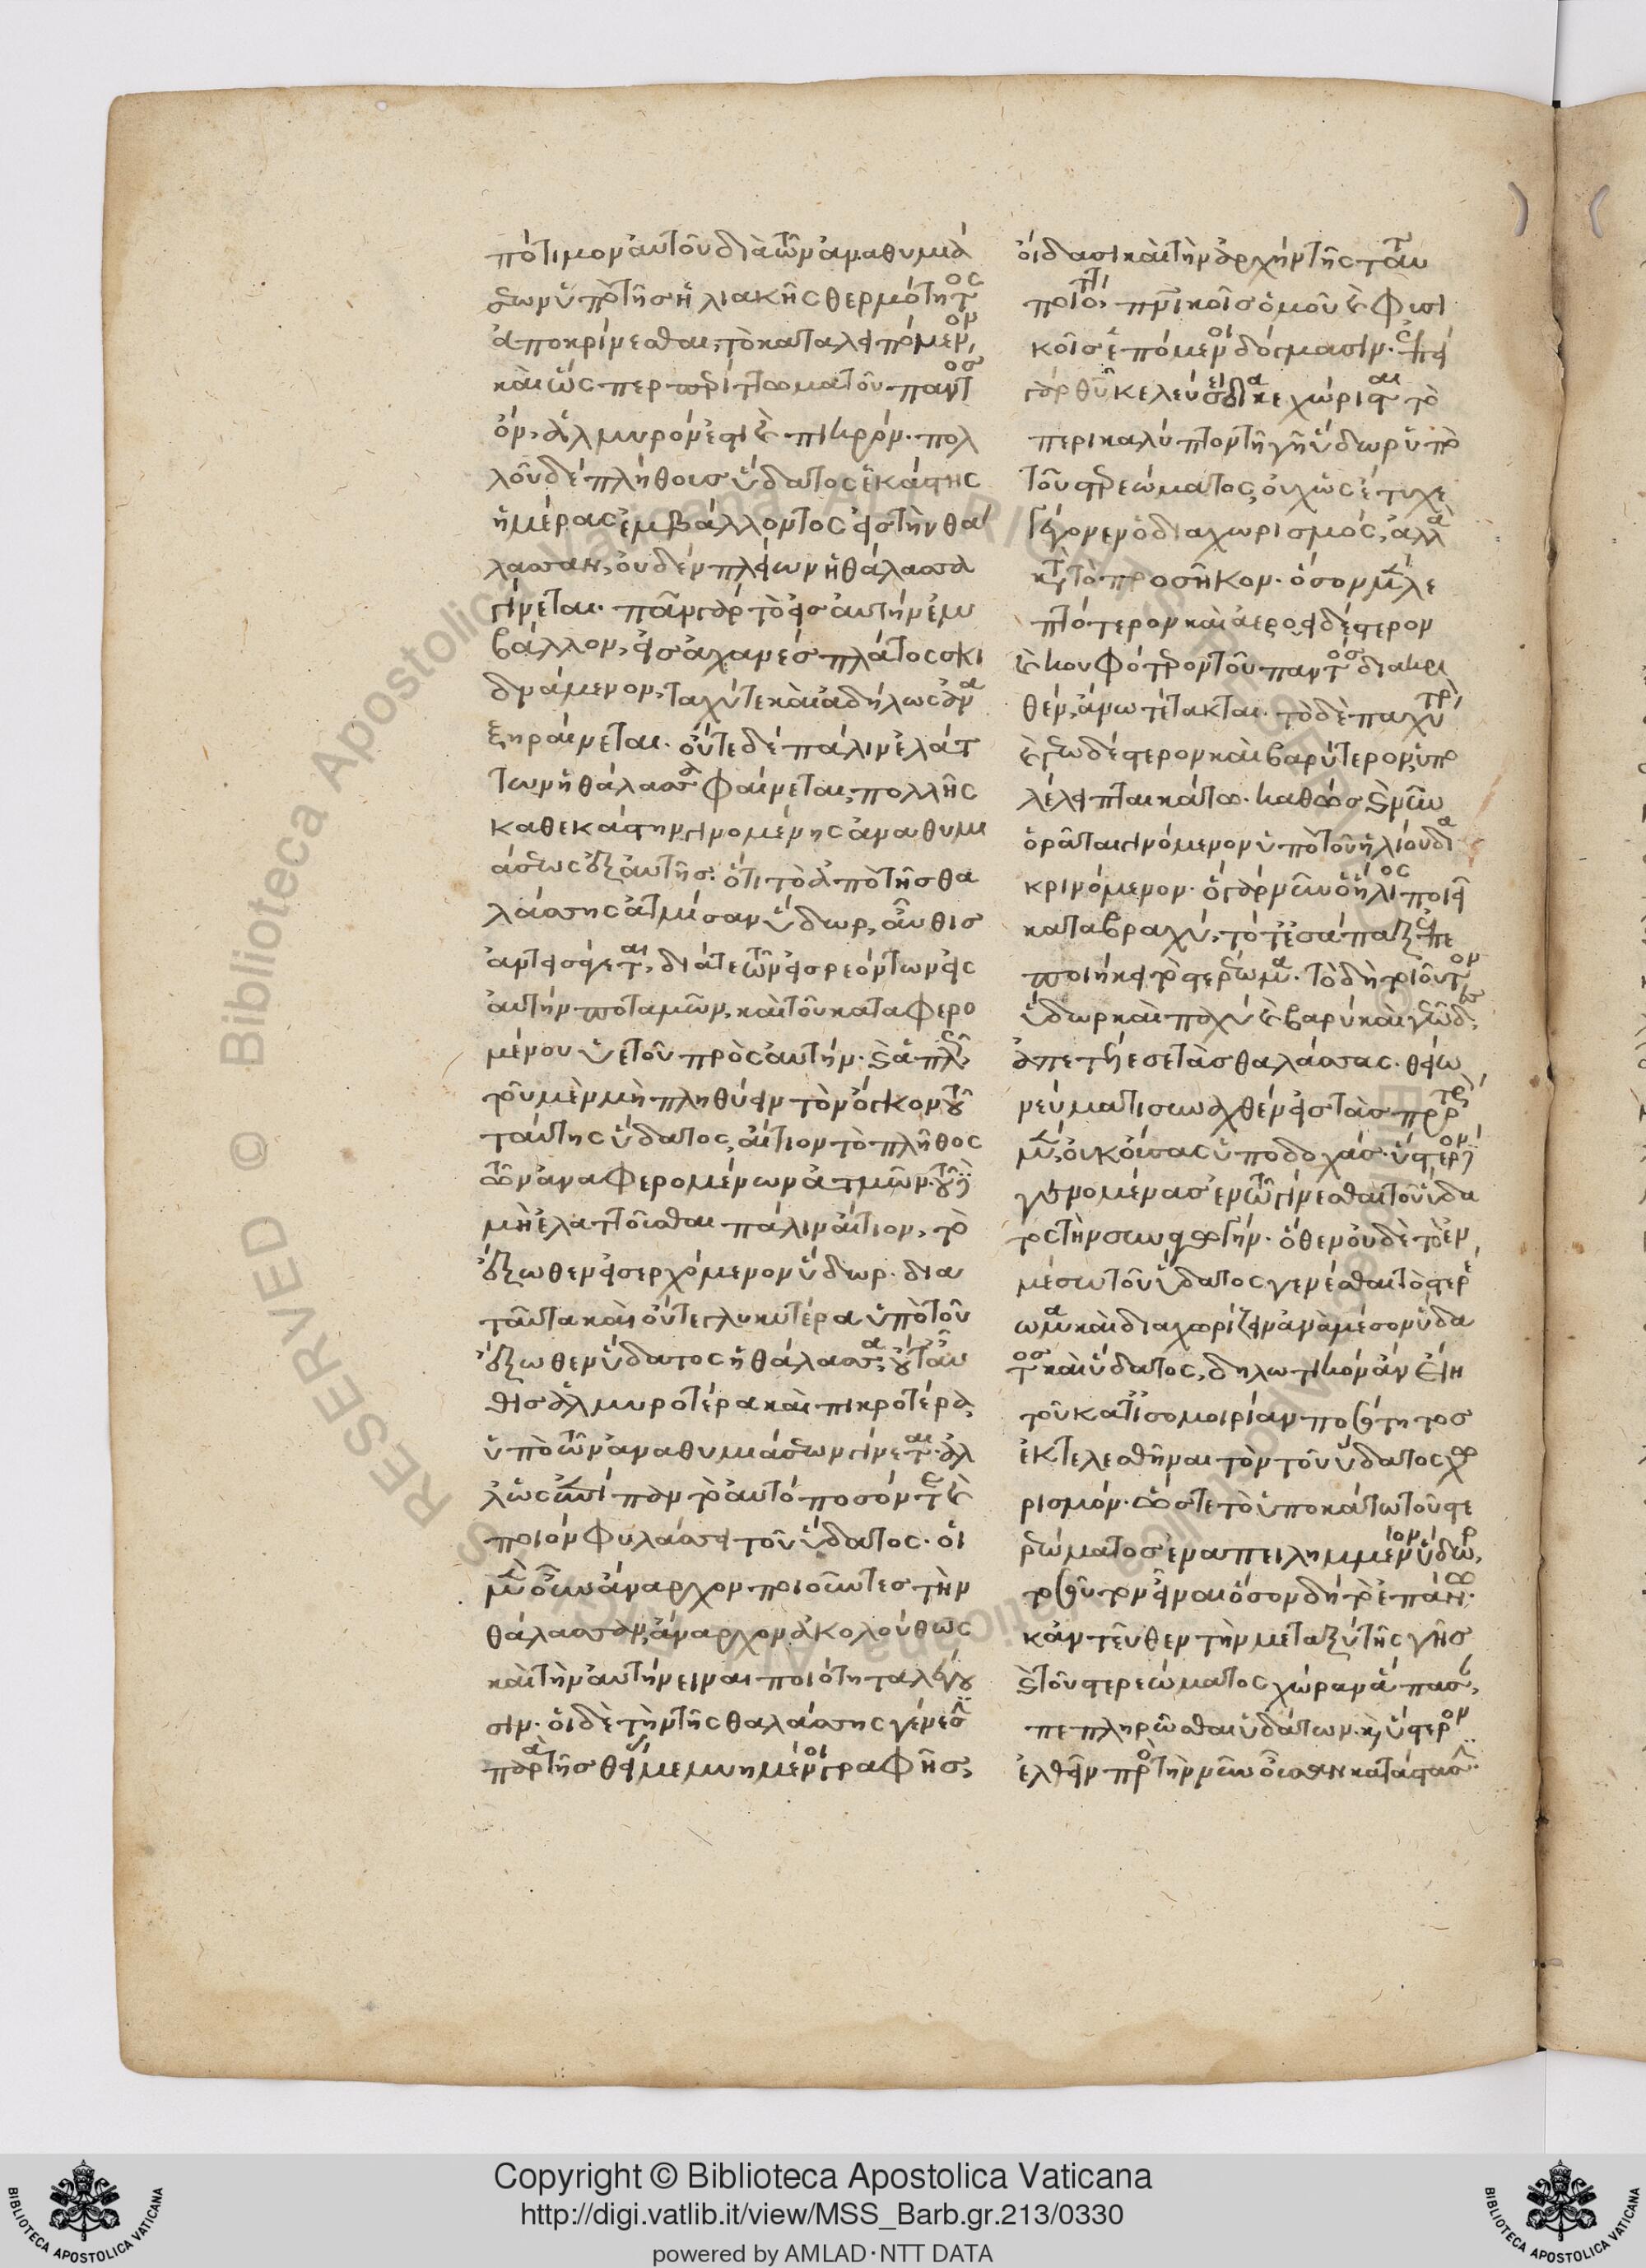 πότιμον αὐτοῦ διὰ τῶν ἀναθυμιά
σεων ὑπὸ τῆς ἡλιακῆς θερμότητος
ἀποκρίνεσθαι, τὸ καταλειπόμενον,
καὶ ὥσπερ περίττωμα τοῦ παντὸς
ὂν, ἁλμυρόν ἐστι καὶ πικρόν. πολ
λοῦ δὲ πλήθους ὕδατος ἑκάστης
ἡμέρας ἐμβάλλοντος εἰς τὴν θά
λασσαν, οὐδὲν πλείων ἡ θάλασσα
γίνεται. πᾶν γὰρ τὸ εἰς αὐτὴν ἐμ
βάλλον, εἰς ἀχανὲς πλάτος σκι
δνάμενον, ταχύ τε καὶ ἀδήλως ἀνα
ξηραίνεται. οὔτε δὲ πάλιν ἐλάτ
των ἡ θάλασσα φαίνεται, πολλῆς
καθεκάστην γινομένης ἀναθυμι
άσεως ἐξ αὐτῆς. ὅτι τὸ ἀπὸ τῆς θα
λάσσης ἀτμίσαν ὕδωρ, αὖθις
ἀντεισάγεται, διά τε τῶν εἰσρεόντων εἰς
αὐτὴν ποταμῶν, καὶ τοῦ καταφερο
μένου ὑετοῦ πρὸς αὐτήν. καὶ ἁπλῶς,
τοῦ μὲν μὴ πληθύειν τὸν ὄγκον τοῦ
ταύτης ὕδατος, αἴτιον τὸ πλῆθος
τῶν ἀναφερομένων ἀτμῶν. τοῦ δὲ
μὴ ἐλαττοῦσθαι πάλιν αἴτιον, τὸ
ἔξωθεν εἰσερχόμενον ὕδωρ. διὰ
ταῦτα καὶ οὔτε γλυκυτέρα ὑπὸ τοῦ
ἔξωθεν ὕδατος ἡ θάλασσα, οὔτ' αὖ
θις ἁλμυροτέρα καὶ πικροτέρα,
ὑπὸ τῶν ἀναθυμιάσεων γίνεται. ἀλ
λ' ὡς ἐπίπαν τὸ αὐτὸ ποσόν τε καὶ
ποιὸν φυλάσσει τοῦ ὕδατος. οἱ
μὲν οὖν ἄναρχον ποιοῦντες τὴν
θάλασσαν, ἄναρχον ἀκολούθως
καὶ τὴν αὐτὴν εἶναι ποιότητα λέγου
σιν. οἱ δὲ τὴν τῆς θαλάσσης γένεσιν
παρὰ τῆς θείας μεμνημένοι γραφῆς,
οἴδασι καὶ τὴν ἀρχὴν τῆς ταύ
ποιότητι, πρικοῖς ὁμοῦ καὶ φυσι
κοῖς ἑπόμενοι δόγμασιν. ἐπεὶ
γὰρ θῦ κελεύσει διακεχώρισται τὸ
περικαλύπτον τὴν γῆν ὕδωρ ὑπὸ
τοῦ στερεώματος, οὐχ ὡς ἔτυχε
γέγονεν ὁ διαχωρισμός, ἀλλὰ
κατὰ τὸ προσῆκον. ὅσον μὲν λε
πτότερον καὶ ἀεροειδέστερον
καὶ κουφότερον τοῦ παντὸς διακρι
θὲν, ἄνω τέτακται. τὸ δὲ παχύτερον
καὶ γεωδέστερον καὶ βαρύτερον, ὑπο
λέλειπται κάτω. καθὼς καὶ νῦν
ὁρᾶται γινόμενον ὑπὸ τοῦ ἡλίου δια
κρινόμενον. ὃ γὰρ νῦν ὁ ἥλιος ποιεῖ
καταβραχύ, τότε εἰσάπαξ ἐπε
ποιήκει τὸ στερέωμα. τὸ δὴ τοιοῦτον
ὕδωρ καὶ παχὺ καὶ βαρὺ καὶ γεῶδες,
ἀπετίησε τὰς θαλάσσας. θείῳ
νεύματι συναχθὲν εἰς τὰς πρότερον
μὲν, οὐκ οὔσας ὑποδοχάς. ὕστερον δὲ
γενομένας ἐν τῷ γίνεσθαι τοῦ ὕδα
τος τὴν συναγωγήν. ὅθεν οὐδὲ τὸ ἐν
μέσῳ τοῦ ὕδατος γενέσθαι τὸ στερέ
ωμα καὶ διαχωρίζειν ἀνὰ μέσον ὕδα
τος καὶ ὕδατος, δηλωτικὸν ἂν εἴη
τοῦ κατ' ἰσομοιρίαν ποσότητος
ἐκτελεσθῆναι τὸν τοῦ ὕδατος χω
ρισμόν. ὥστε τὸ ὑποκάτω τοῦ στε
ρεώματος ἐναπειλημμένον ὕδωρ,
τοσοῦτον εἶναι ὅσον δὴ τὸ ἐπάνω.
κἀντεῦθεν τὴν μεταξὺ τῆς γῆς
καὶ τοῦ στερεώματος χώραν ἅπασαν,
πεπληρῶσθαι ὑδάτων. καὶ ὕστερον
ἐλθεῖν πρὸς τὴν νῦν οὖσαν κατάστασιν.
Copyright © Biblioteca Apostolica Vaticana
http://digi.vatlib.it/view/MSS_Barb.gr.213/0330
powered by AMLAD·NTT DATA